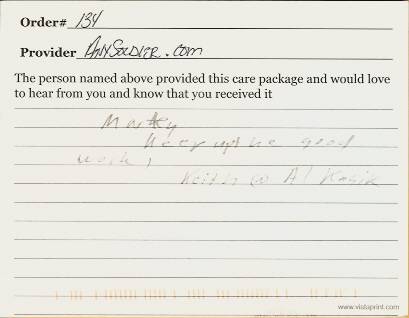 Order# 134
Provider AnySoldier.com
The person named above provided this care package and would love
to hear from you and know that you received it
Marty
Keep up the good
work,
Keith @ Al
www.vistaprint.com